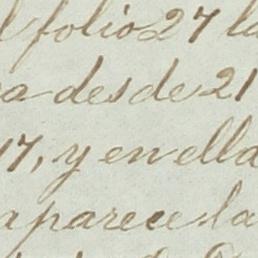 l folio 27 la
a desde 21
17, y en ella
aparece la